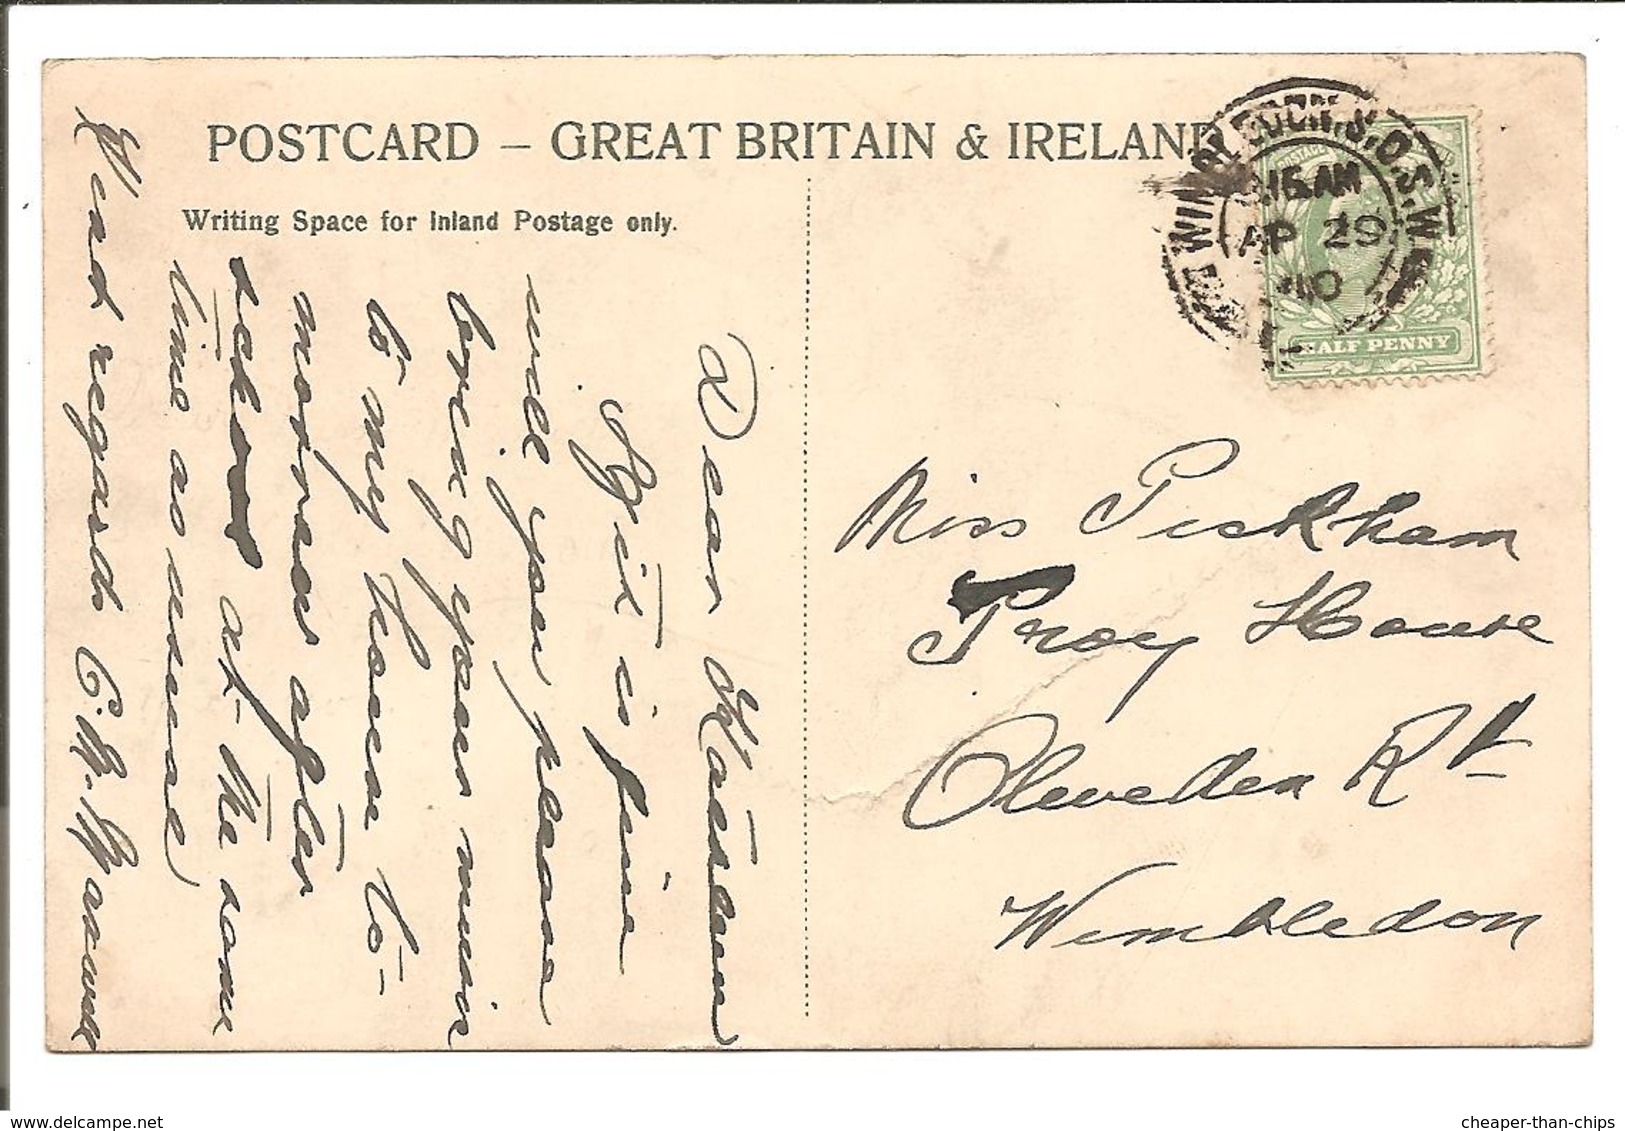 POSTCARD – GREAT BRITAIN & IRELAND
Writing Space for Inland Postage only.
WIMBLEDON.S.O. S.W
15 AM
AP 29
10
HALF PENNY
Miss Peckham
Troy House
Cleveden Rd
Wimbledon
Dear Kathleen
If it is fine
will you please
bring your music
to my house to-
morrow after
school at the same
time as usual
Kind regards C. M.
cheaper-than-chips